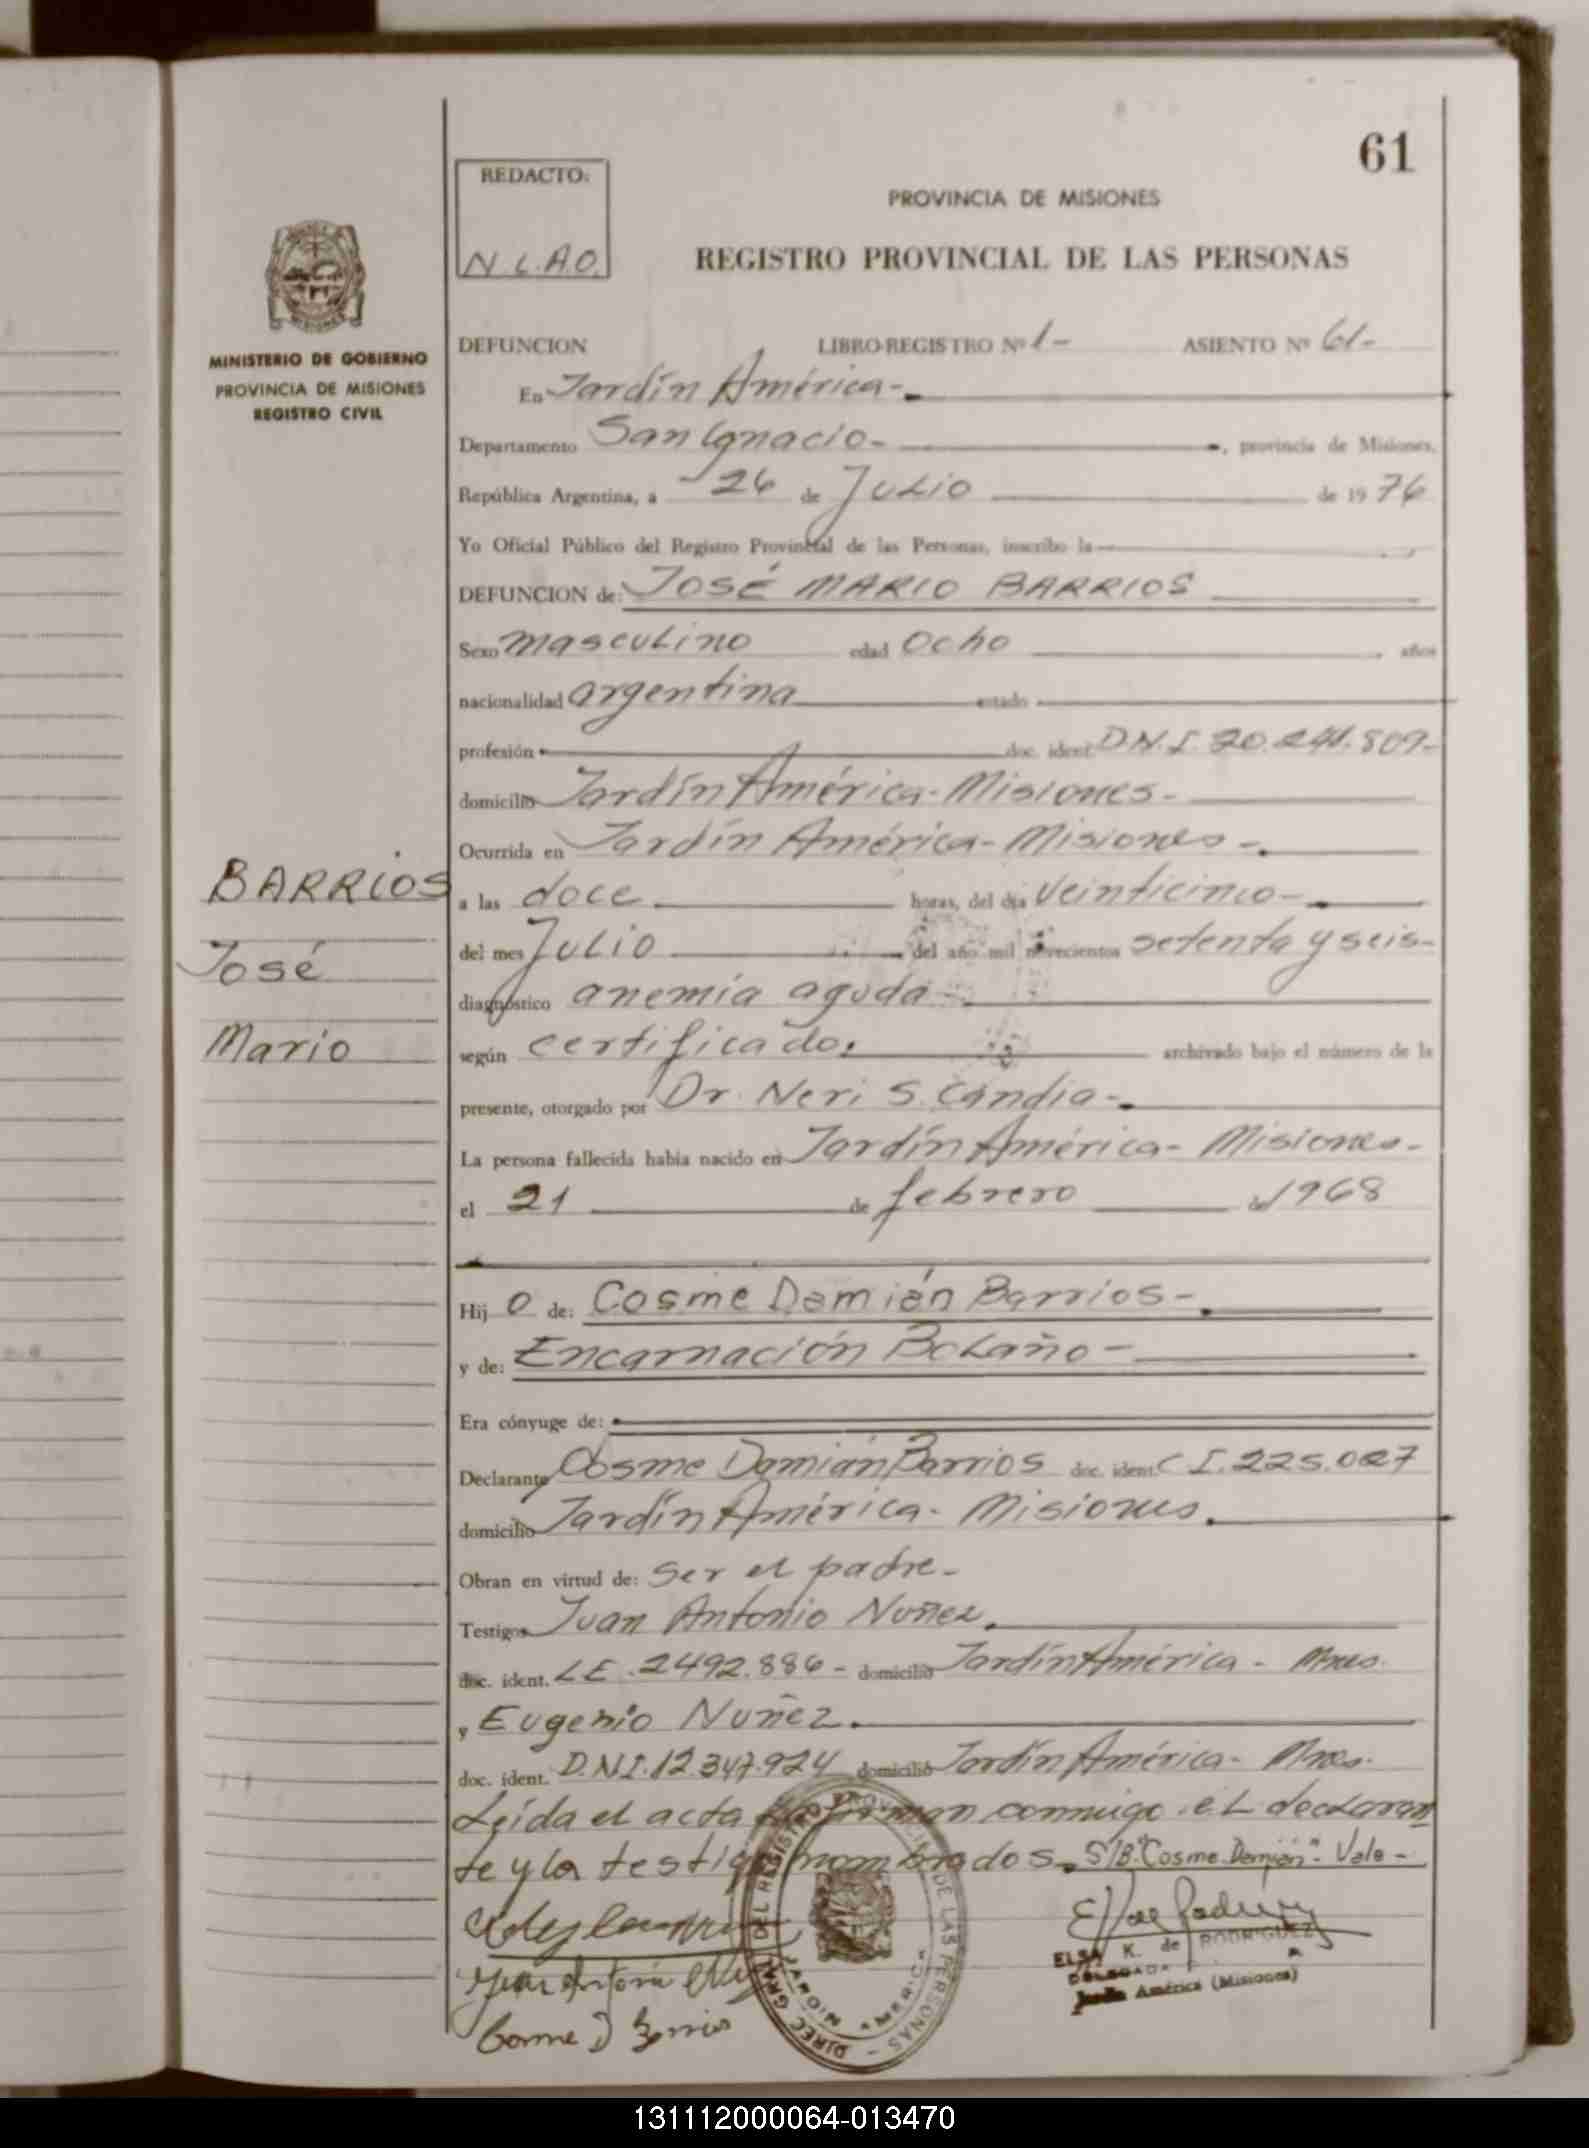 61
REDACTO:
N L.A.O.
PROVINCIA DE MISIONES
REGISTRO PROVINCIAL DE LAS PERSONAS
MINISTERIO DE GOBIERNO
PROVINCIA DE MISIONES
REGISTRO CIVIL
DEFUNCION LIBRO-REGISTRO Nº 1- ASIENTO Nº 61-
En Jardín América-
Departamento San Ignacio- , provincia de Misiones,
República Argentina, a 26 de Julio de 1976
Yo Oficial Público del Registro Provincial de las Personas, inscribo la
DEFUNCION de: JOSÉ MARIO BARRIOS
Sexo masculino edad ocho años
nacionalidad argentina estado
profesión doc. ident. D.N.I. 20.241.809-
domicilio Jardín América- Misiones-
Ocurrida en Jardín América- Misiones-
BARRIOS
José
Mario
a las doce horas, del día veinticinco-
del mes Julio del año mil novecientos setenta y seis-
diagnóstico anemia aguda-
según certificado. archivado bajo el número de la
presente, otorgado por Dr. Neri S. Candia-
La persona fallecida había nacido en Jardín América- Misiones-
el 21 de febrero de 1968
Hij o de: Cosme Damián Barrios-
y de: Encarnación Bolaño-
Era cónyuge de:
Declarante Cosme Damián Barrios doc. ident. C I. 225.027
domicilio Jardín América- Misiones.
Obran en virtud de: ser el padre-
Testigos Juan Antonio Nuñez.
doc. ident. L E. 2492.886- domicilio Jardín América- Mnes.
y Eugenio Nuñez.
doc. ident. D.N.I. 12.347.924 domicilio Jardín América- Mnes.
Leída el acta la firman conmigo el declaran
te y los testigos nombrados. S/B. "Cosme Damián" - Vale-
Juan Antonio
Cosme D Barrios
ELSA K. de RODRIGUEZ
DELEGADA
Jardín América (Misiones)
DIREC GRAL DEL REGISTRO PROVINCIAL DE LAS PERSONAS -
JARDIN AMERICA
MISIONES
131112000064-013470